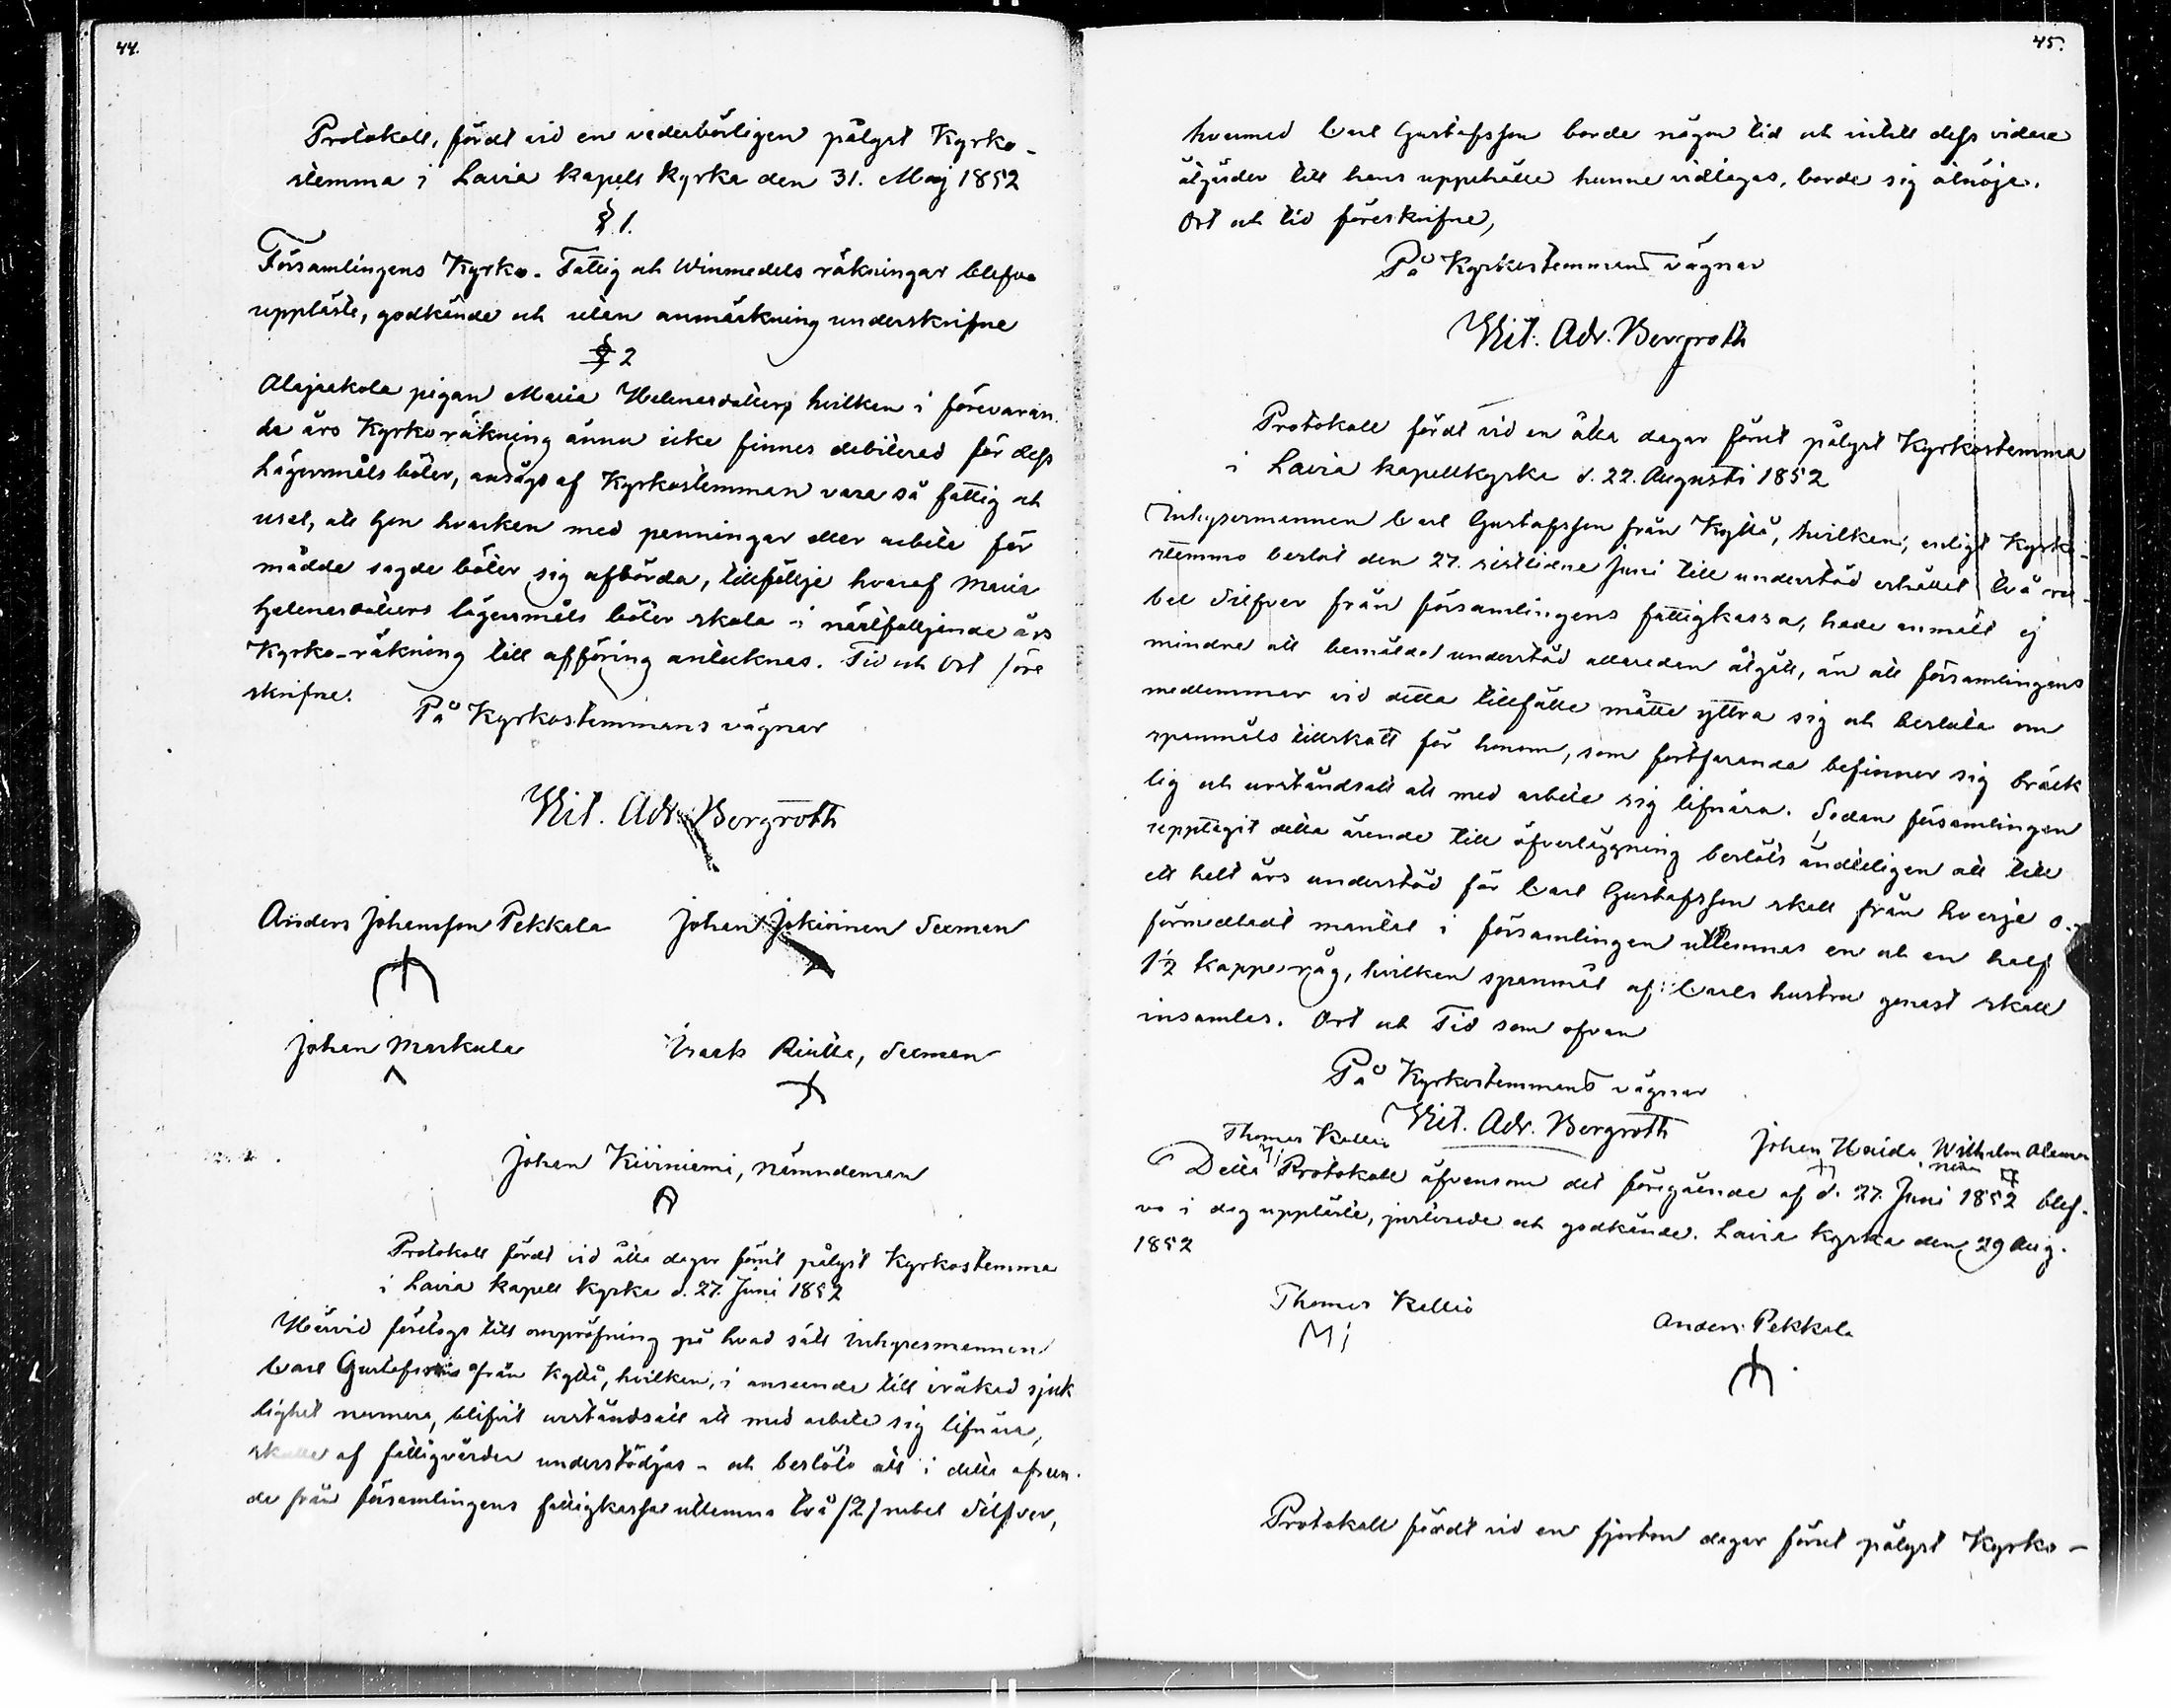 44.
Protokoll, fördt vid en vederbörligen pålyst Kyrko-
stemma i Lavia kapells kyrka den 31. Maj 1852
§ 1.
Församlingens Kyrko- Fattig och Winmedels räkningar blefvo
uppläste, godkände och utan anmärkning underskrifne
§ 2
Alajaakola pigan Maria Helenasdotter, hvilken i förevaran
de års Kyrkoräkning ännu icke finnes debiterad för dess
Lägersmåls böter, ansågs af Kyrkostemman vara så fattig och
usel, att hon hvarken med penningar eller arbete för
mådde sagde böter sig afbörda, tillföllje hvaraf Maria
Helenasdotters lägersmåls böter skola i nästföljande års
Kyrko-räkning till afföring antecknas. Tid och Ort före
skrifne.
På Kyrkostemmans vägnar
Vit. Adr. Bergroth
Anders Johansson Pekkala Johan Jokirinen Sexman
Johan Markula Isaak Riutta, Sexman
Johan Kiviniemi, nämndeman
Protokoll fördt vid åtta dagar förut pålyst Kyrkostemma
i Lavia kapell kyrka d. 27. Juni 1852
Härvid företogs till ompröfning på hvad sätt Inhysesmannen
Carl Gustafsson från Kyttä, hvilken, i anseende till iråkad sjuk
lighet numera, blifvit urståndsatt att med arbete sig lifnära,
skulle af fattigvården understödjas - och beslöts att i detta afseen-
de från församlingens fattigkassa utlemna två /2/ rubel Silfver,
45.
hvarmed Carl Gustafsson borde någon tid och intill dess vidare
åtgärder till hans uppehälle hunne vidtagas, borde sig åtnöja.
Ort och tid föreskrifne,
På Kyrkostemmans vägnar
Vit. Adr. Bergroth
Protokoll fördt vid en åtta dagar förut pålyst Kyrkostemma
i Lavia kapellkyrka d. 22. Augusti 1852
Inhysesmannen Carl Gustafsson från Kyttä, hvilken, enligt Kyrko-
stemmo beslut den 27. sistlidne Juni till understöd erhållit två ru-
bel Silfver från församlingens fattigkassa, hade anmält ej
mindre att bemälda understöd allaredan åtgått, än att församlingens
medlemmar vid detta tillfälle måtte yttra sig och besluta om
spannmåls tillskott för honom, som fortfarande befinner sig bräck
lig och urståndsatt att med arbete sig lifnära. Sedan församlingen
upptagit detta ärende till öfverläggning beslöts ändteligen att till
ett helt års understöd för Carl Gustafsson skall från hvarje o-
förmedladt mantal i församlingen utlemnas en och en half
1½ kappe råg, hvilken spannmål af Carls hustru genast skall
insamlas. Ort och Tid som ofvan
På Kyrkostemmans vägnar
Vit. Adr. Bergroth
Thomas Kallio Johan Haida Wilhelm
Detta Protokoll äfvensom det föregående af d. 27. Juni 1852 blef-
vo i dag uppläste, justerade och godkände. Lavia kyrka den 29 Aug.
1852
Thomas Kallio Anders Pekkala
Protokoll fördt vid en fjorton dagar förut pålyst Kyrko-